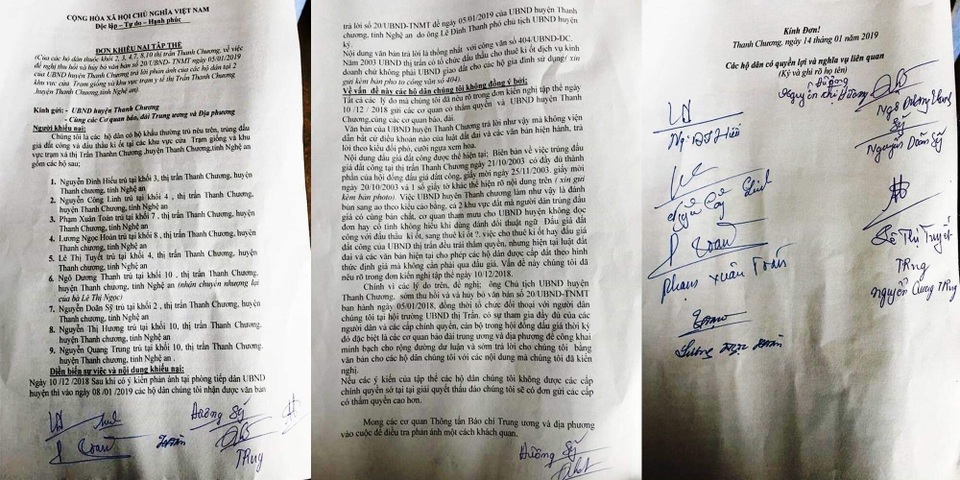 CỘNG HÒA XÃ HỘI CHỦ NGHĨA VIỆT NAM
Độc lập – Tự do – Hạnh phúc
ĐƠN KHIẾU NẠI TẬP THỂ
(Của các hộ dân thuộc khối 2, 3, 4,7, 8,10 thị trấn Thanh Chương, về việc
đề nghị thu hồi và hủy bỏ văn bản số 20/UBND- TNMT ngày 05/01/2019
của UBND huyện Thanh Chương trả lời phản ánh của các hộ dân tại 2
khu vực cửa Trạm giống và khu vực trạm y tế thị Trấn Thanh Chương
,huyện Thanh Chương,tỉnh Nghệ an).
Kính gửi: - UBND huyện Thanh Chương
- Cùng các Cơ quan báo, đài Trung ương và Địa phương
Người khiếu nại:
Chúng tôi là các hộ có hộ khẩu thường trú nêu trên, trúng đấu
giá đất công và đấu thầu ki ốt tại các khu vực cửa Trạm giống và khu
vực trạm xá thị Trấn Thanh Chương ,huyện Thanh Chương,tỉnh Nghệ an
gồm các hộ sau;
1. Nguyễn Đình Hiếu trú tại khối 3, thị trấn Thanh Chương, huyện
Thanh chương, tỉnh Nghệ an
2. Nguyễn Công Linh trú tại khối 4 , thị trấn Thanh Chương,
huyện Thanh chương, tỉnh Nghệ an
3. Phạm Xuân Toàn trú tại khối 7 . thị trấn Thanh Chương, huyện
Thanh chương, tỉnh Nghệ an
4. Lương Ngọc Hoàn trú tại khối 8 , thị trấn Thanh Chương, huyện
Thanh chương, tỉnh Nghệ an
5. Lê Thị Tuyết trú tại khối 4, thị trấn Thanh Chương, huyện
Thanh chương, tỉnh Nghệ an
6. Ngô Dương Thanh trú tại khối 10 . thị trấn Thanh Chương,
huyện Thanh chương, tỉnh Nghệ an (nhân chuyển nhượng lại
của bà Lê Thị Ngọc)
7. Nguyễn Doãn Sỹ trú tại khối 2 , thị trấn Thanh Chương, huyện
Thanh chương, tỉnh Nghệ an
8. Nguyễn Thị Hương trú tại khối 10, thị trấn Thanh Chương,
huyện Thanh chương, tỉnh Nghệ an
9. Nguyễn Quang Trung trú tại khối 10, thị trấn Thanh Chương,
huyện Thanh chương, tỉnh Nghệ an .
Diễn biến sự việc và nội dung khiếu nại:
Ngày 10 /12 /2018 Sau khi có ý kiến phản ánh tại phòng tiếp dân UBND
huyện thì vào ngày 08 /01 /2019 các hộ dân chúng tôi nhận được văn bản
Hương Sỹ
Toàn
TRng
trả lời số 20/UBND-TNMT đề ngày 05/01/2019 của UBND huyện Thanh
chương, tỉnh Nghệ an do ông Lê Đình Thanh phó chủ tịch UBND huyện
ký.
Nội dung văn bản trả lời là thống nhất với công văn số 404/UBND-ĐC.
Năm 2003 UBND thị trấn có tổ chức đấu thầu cho thuê ki ốt dịch vụ kinh
doanh chứ không phải UBND giao đất cho các hộ gia đình sử dụng( xin
gửi kèm bản pho to công văn số 404).
Về vấn đề này các hộ dân chúng tôi không đồng ý bởi:
Tất cả các lý do mà chúng tôi đã nêu rõ trong đơn kiến nghị tập thể ngày
10 /12 / 2018 gửi các cơ quan có thẩm quyền và UBND huyện Thanh
Chương,cùng các cơ quan báo, đài.
Văn bản của UBND huyện Thanh Chương trả lời như vậy mà không viện
dẫn bất cứ điều khoản nào của luật đất đai và các văn bản hiện hành, trả
lời theo kiểu đối phó, cưỡi ngựa xem hoa.
Nội dung đấu giá đất công được thể hiện tại; Biên bản về việc trúng đấu
giá đất công tại thị trấn Thanh Chương ngày 21/10/2003 có đầy đủ thành
phần của hội đồng đấu giá đất công, giấy mời ngày 25/11/2003. giấy mời
ngày 20/10/2003 và 1 số giấy tờ khác thể hiện rõ nội dung trên ( xin gửi
kèm bản photo). Việc UBND huyện Thanh chương làm như vậy là đánh
bùn sang ao theo kiểu cào bằng, cả 2 khu vực đất mà người dân trúng đấu
giá có cùng bản chất, cơ quan tham mưu cho UBND huyện không đọc
đơn hay cố tình không hiểu khi dùng đánh đổi thuật ngữ Đấu giá đất
công với đấu thầu ki ốt, sang thuê ki ốt ?. việc cho thuê ki ốt hay đấu giá
đất công của UBND thị trấn đều trái thẩm quyền, nhưng hiện tại luật đất
đai và các văn bản hiện tại cho phép các hộ dân được cấp đất theo hình
thức định giá mà không cần phải qua đấu giá. Vấn đề này chúng tôi đã
nêu rõ trong đơn kiến nghị tập thể ngày 10/12/2018.
Chính vì các lý do trên, đề nghị; ông Chủ tịch UBND huyện
Thanh Chương, sớm thu hồi và và hủy bỏ văn bản số 20/UBND-TNMT
ban hành ngày 05/01/2018, đồng thời tổ chức đối thoại với người dân
chúng tôi tại hội trường UBND thị Trấn, có sự tham gia đầy đủ của các
người dân và các cấp chính quyền, cán bộ trong hội đồng đấu giá thời kỳ
đó đặc biệt là các cơ quan báo đài trung ương và địa phương để công khai
minh bạch cho rộng đường dư luận và sớm trả lời cho chúng tôi bằng
văn bản cho các hộ dân chúng tôi với các nội dung mà chúng tôi đã kiến
nghị.
Nếu các ý kiến của tập thể các hộ dân chúng tôi không được các cấp
chính quyền sở tại tại giải quyết thấu đáo chúng tôi sẽ có đơn gửi các cấp
có thẩm quyền cao hơn.
Mong các cơ quan Thông tấn Báo chí Trung ương và địa phương
vào cuộc để điều tra phản ánh một cách khách quan.
Hương Sỹ
Kính Đơn!
Thanh Chương, ngày 14 tháng 01 năm 2019
Các hộ dân có quyền lợi và nghĩa vụ liên quan
(Ký và ghi rõ họ tên)
Hương
Nguyễn Thị Hương
Ngô Dương Thanh
Sỹ
Nguyễn Doãn Sỹ
Toàn
Phạm Xuân Toàn
Lê Thị Tuyết
TRng
Nguyễn Quang TRng
Lương Ngọc Hoàn